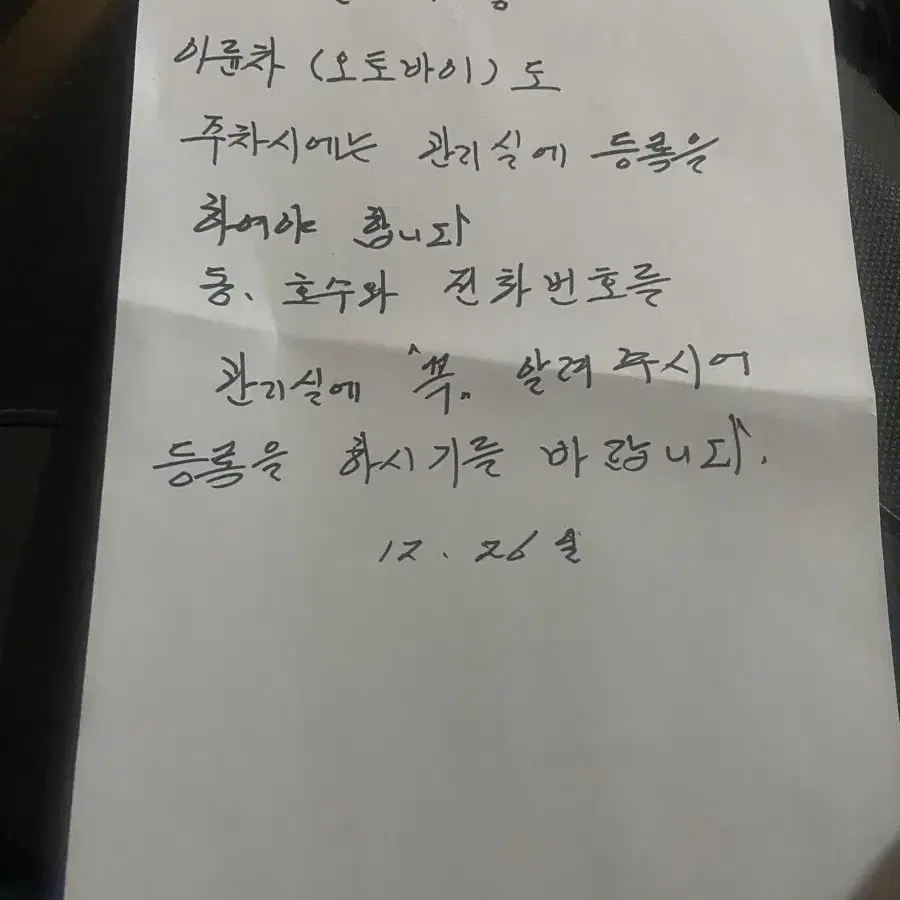 이륜차 (오토바이) 도
주차시에는 관리실에 등록을
하여야 합니다
동. 호수와 전화번호를
관리실에 "꼭" 알려 주시어
등록을 하시기를 바랍니다.
12. 26